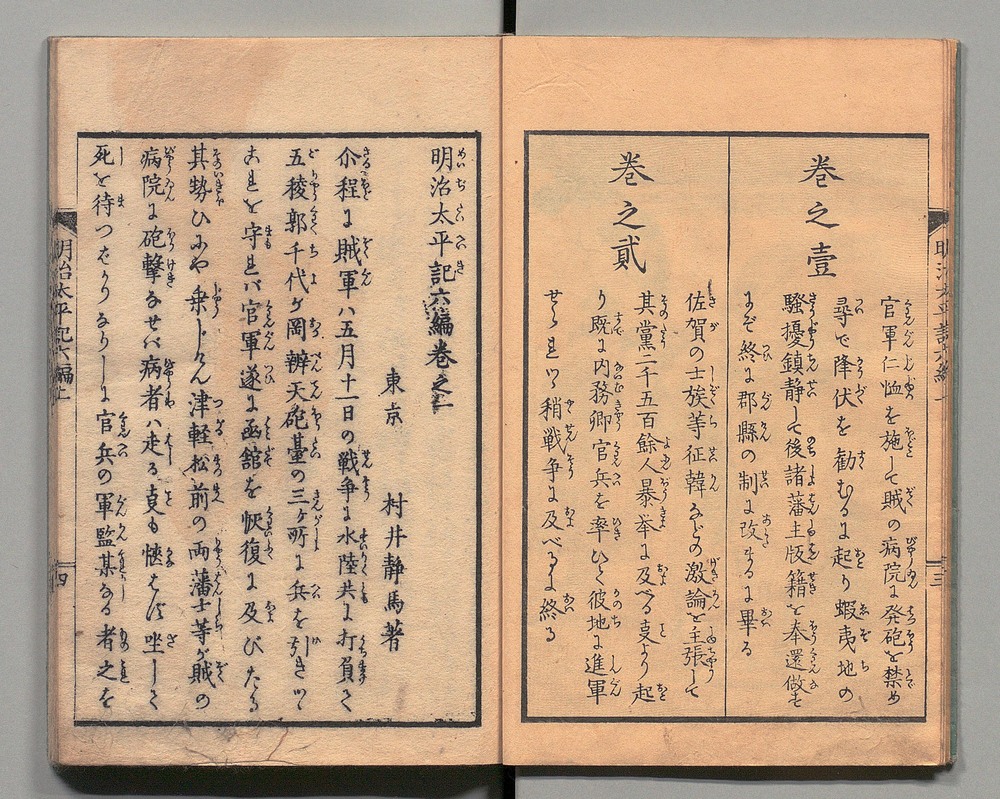 巻之壹
官軍仁恤を施して賊の病院に発砲を禁め
尋で降伏を勧むるに起り蝦夷地の
騒擾鎮静して後諸藩主版籍を奉還做セ
まで終に郡縣の制に改まるに畢る
巻之貳
佐賀の士族等征韓などの激論を主張して
其黨二千五百餘人暴挙に及べる叓より起
り既に内務卿官兵を率ひて彼地に進軍
せられツヽ稍戦争に及べるに終る
明治太平記六編巻之一
東京 村井静馬著
尒程に賊軍ハ五月十一日の戦争に水陸共に打負て
五稜郭千代ケ岡辨天砲臺の三ケ所に兵を引きツヽ
これを守れバ官軍遂に函舘を恢復に及びたる
其勢ひにや乗じけん津軽松前の両藩士等ガ賊の
病院に砲撃なせバ病者ハ走る叓も愜はず坐して
死を待つばかりなりしに官兵の軍監某なる者之を
明治太平記六編上
四
三